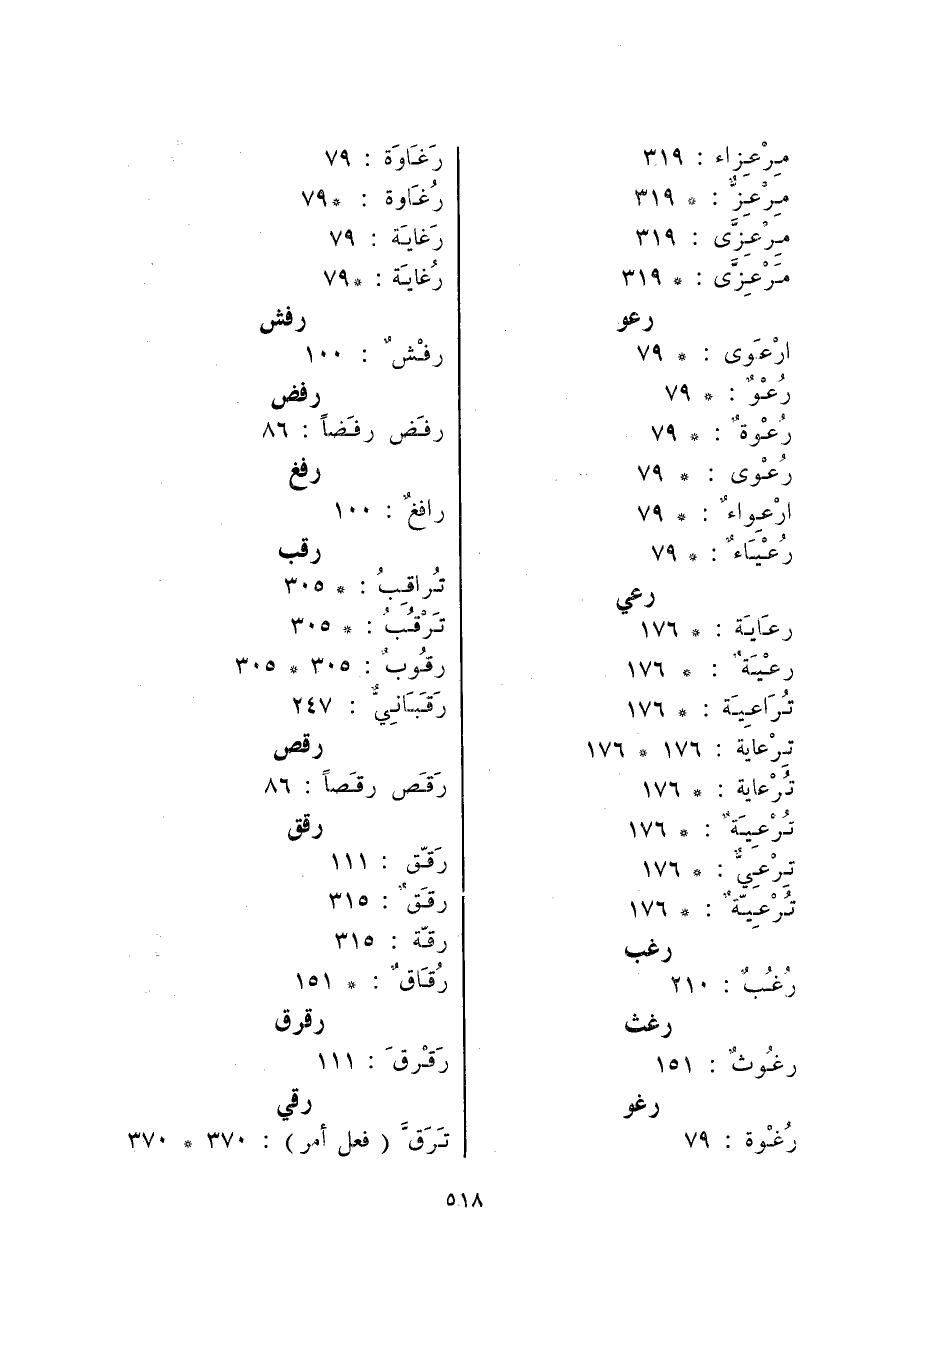 مِرْعِزاء : ٣١٩
مِرْعِزٌّ : * ٣١٩
مِرْعِزَّى : ٣١٩
مَرْعِزَّى : * ٣١٩
رعو
ارْعَوى : * ٧٩
رُعْوٌ : * ٧٩
رُعْوةٌ : * ٧٩
رُعْوى : * ٧٩
ارْعِواءٌ : * ٧٩
رُعْيَاءٌ : * ٧٩
رعي
رعَايَة : * ١٧٦
رعْيَةٌ : * ١٧٦
تُرَاعِيَة : * ١٧٦
تِرْعاية : ١٧٦ * ١٧٦
تُرْعاية : * ١٧٦
تُرْعِيَةٌ : * ١٧٦
تِرْعِيٌّ : * ١٧٦
تُرْعِيّةٌ : * ١٧٦
رغب
رُغُبٌ : ٢١٠
رغث
رغُوثٌ : ١٥١
رغو
رُغْوة : ٧٩
رَغَاوَة : ٧٩
رُغَاوة : *٧٩
رَغايَة : ٧٩
رُغايَة : *٧٩
رفش
رفْشٌ : ١٠٠
رفض
رفَض رفَضاً : ٨٦
رفغ
رافغٌ : ١٠٠
رقب
تُراقِبُ : * ٣٠٥
تَرْقُبُ : * ٣٠٥
رقُوبٌ : ٣٠٥ * ٣٠٥
رَقَبَانيٌّ : ٢٤٧
رقص
رَقَص رقَصاً : ٨٦
رقق
رَقّق : ١١١
رقَقٌ : ٣١٥
رقّة : ٣١٥
رُقَاقٌ : * ١٥١
رقرق
رَقْرقَ : ١١١
رقي
تَرَقَّ ( فعل أمر ) : ٣٧٠ * ٣٧٠
٥١٨